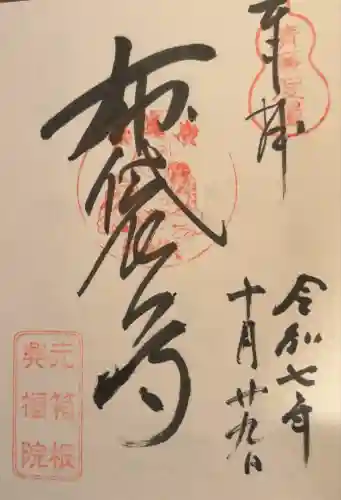 奉拝
布袋尊
令和七年
十月廿九日
元箱根
興福院